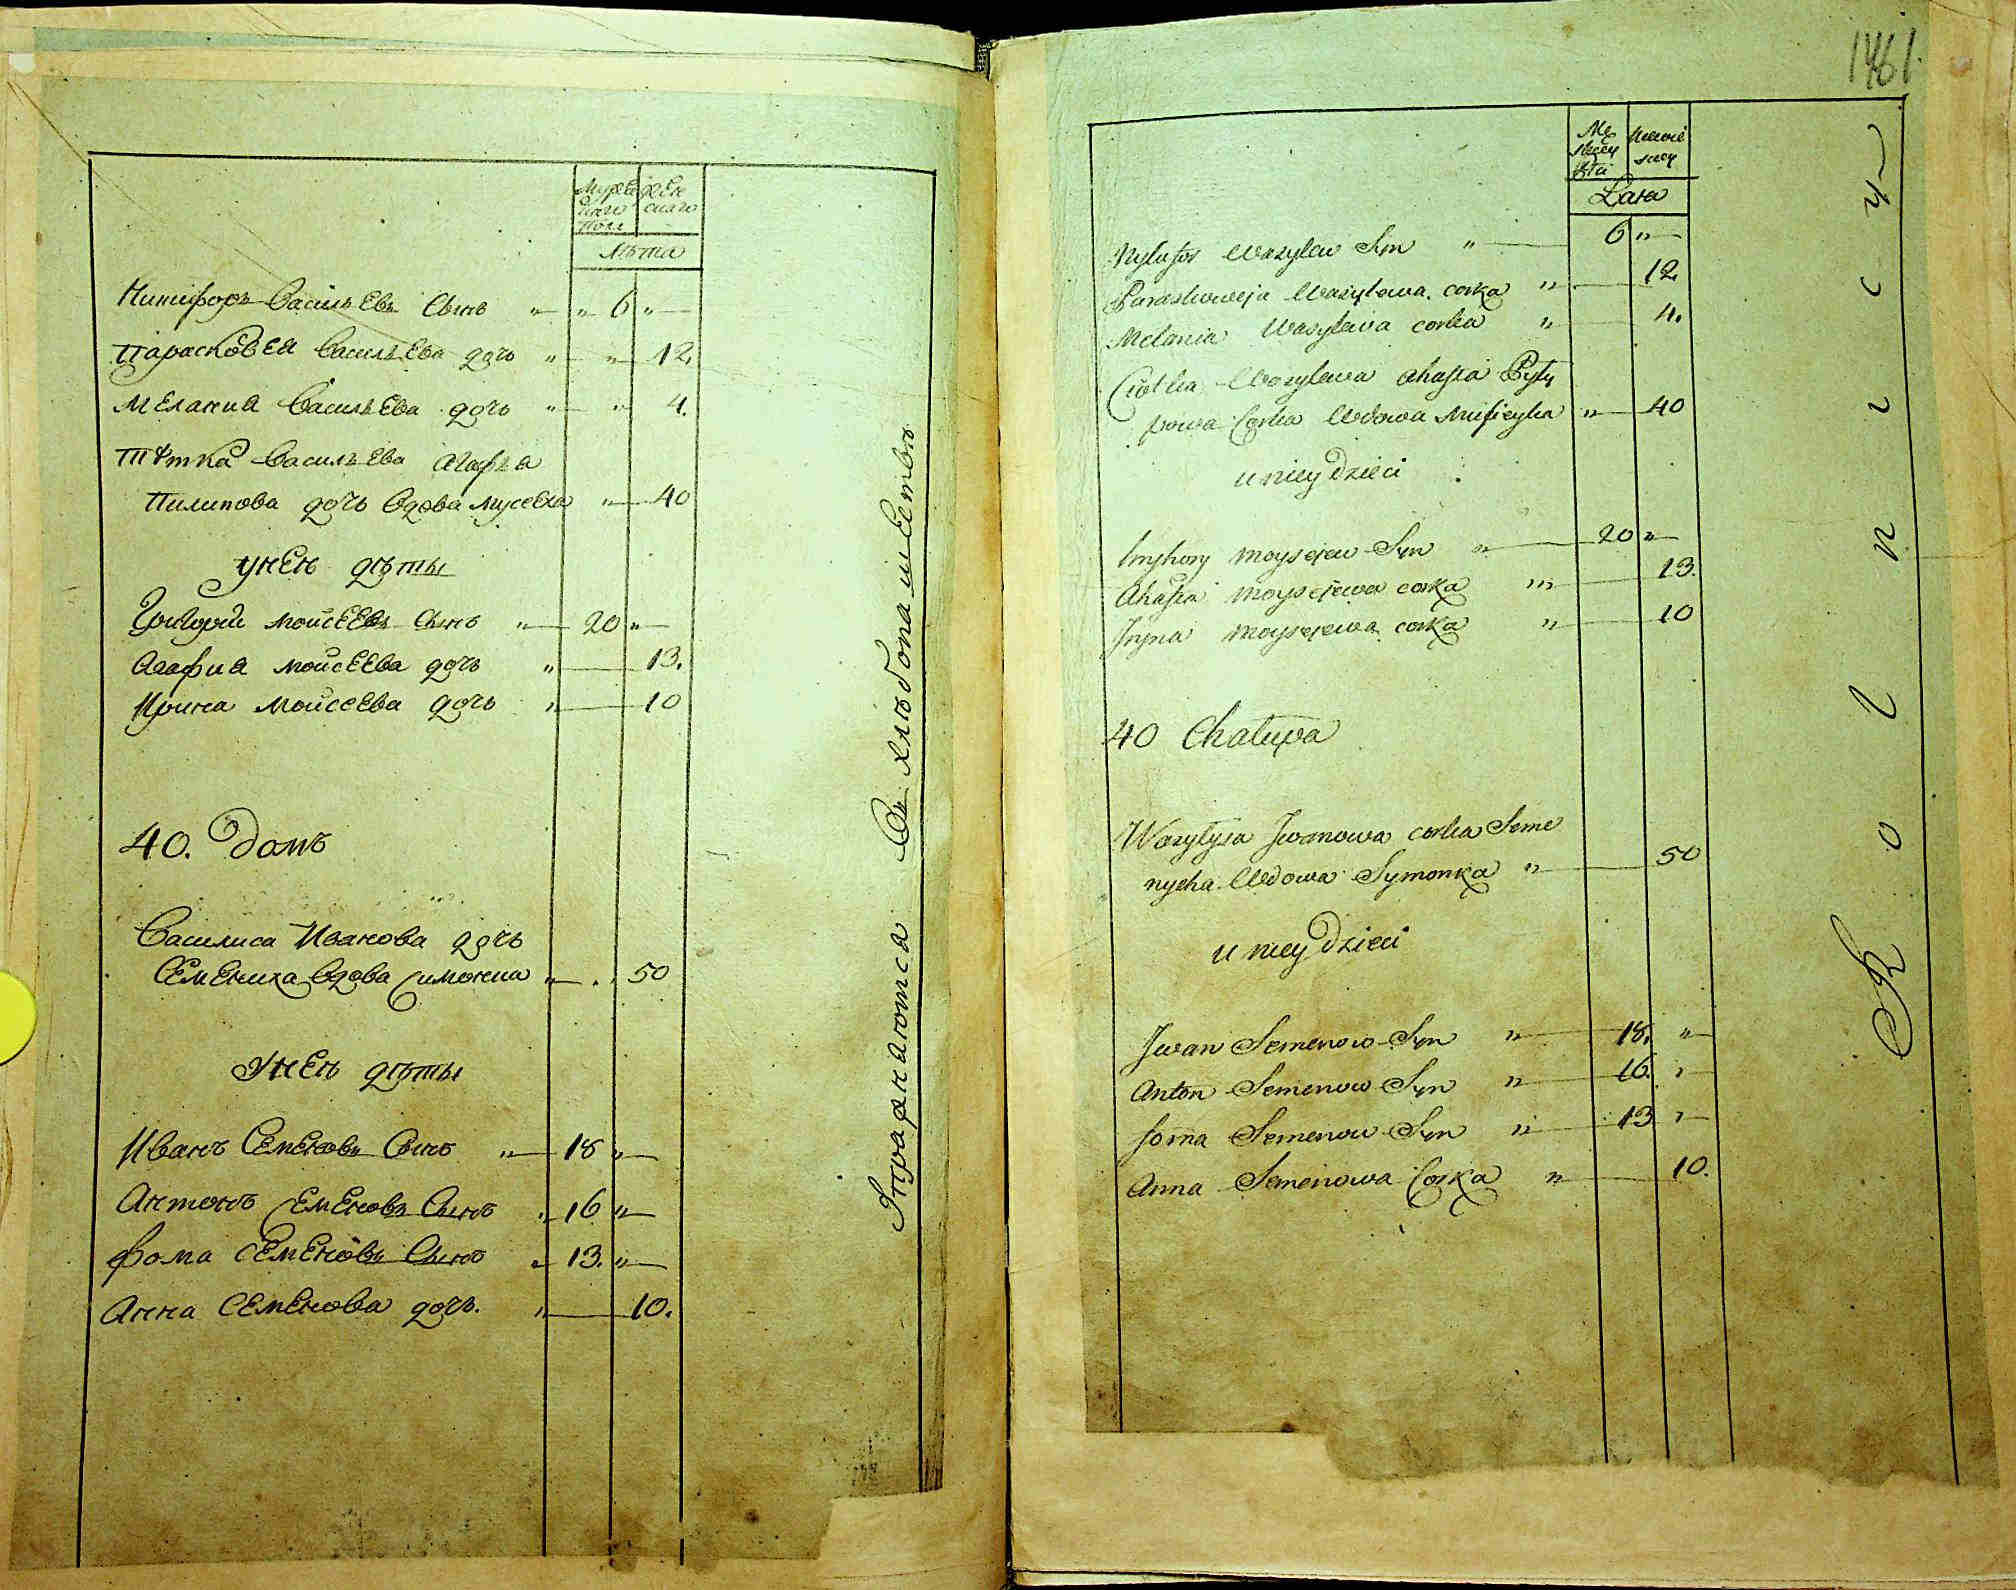 Мужеска
го
полу
Женскаго
Лѣта
Никифоръ Васильевъ Сынъ " " 6 "
Парасковея Васильева дочь " " 12.
Мелания Васильева дочь " " 4.
Тѣтка Васильева Агафья
Пилипова дочь Вдова Мусевха " 40
у ней дѣты
Григорий Моисеевъ Сынъ " 20 "
Агафия Моисеева дочь " 13.
Ирина Моисеева дочь " 10
40. Домъ
Василиса Иванова дочь
Семениха Вдова Симонка " 50
У ней дѣты
Иванъ Семеновъ Сынъ " 18 "
Антонъ Семеновъ Сынъ " 16 "
Фома Семеновъ Сынъ " 13. "
Анна Семенова дочь. " 10.
Упражнаются Въ хлѣбопашествѣ
1461.
Lata
Nykyfor Wasylew Syn " 6 "
Paraskoweja Wasylowa corka " 12
Melania Wasylewa corka " 4.
Ciotka Wasylewa Ahafia Pyły
powa Corka Wdowa Musieyka " 40
u niey Dzieci
Hryhory Moysejew Syn " 20 "
Ahafia Moysejewa corka " 13.
Iryna Moysejewa corka " 10
40 Chałupa
Wasylysa Jwanowa corka Seme
nycha Wdowa Symonka " 50
u niey Dzieci
Jwan Semenow Syn " 18. "
Anton Semenow Syn " 16. "
foma Semenow Syn " 13 "
Anna Semenowa Corka " 10.
Rolnicy